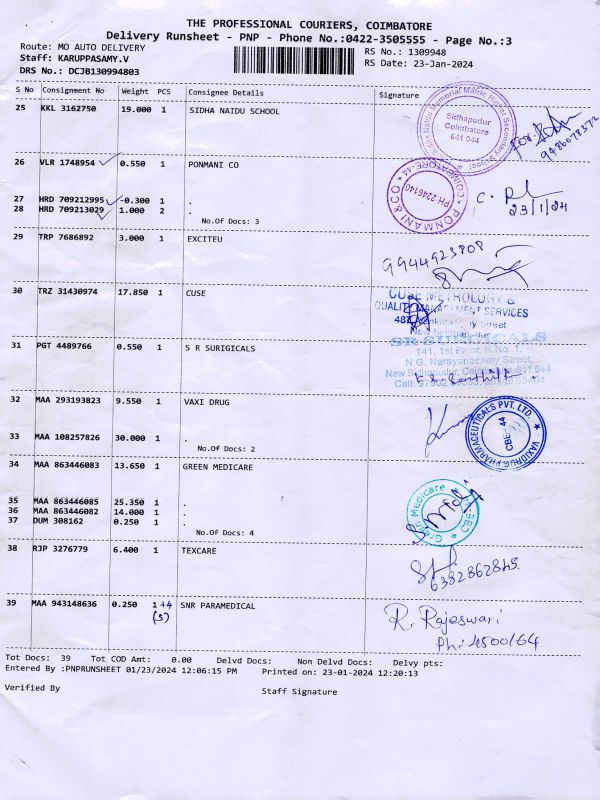 THE PROFESSIONAL COURIERS, COIMBATORE
Delivery Runsheet - PNP - Phone No.:0422-3505555 - Page No.:3
Route: MO AUTO DELIVERY
RS No.: 1309948
Staff: KARUPPASAMY.V
RS Date: 23-Jan-2024
DRS No.: DCJB130994803
S No Consignment No Weight PCS Consignee Details Signature
25 KKL 3162750 19.000 1 SIDHA NAIDU SCHOOL
Sidhapudur
Coimbatore
641 044
9486078372
26 VLR 1748954 0.550 1 PONMANI CO
PONMANI & CO
COIMBATORE-44
PH 2246140
27 HRD 709212995 -0.300 1 .
28 HRD 709213029 1.000 2 .
23/1/24
No.Of Docs: 3
29 TRP 7686892 3.000 1 EXCITEU
9944923808
30 TRZ 31430974 17.850 1 CUSE
CUSE METROLOGY &
QUALITY MANAGEMENT SERVICES
31 PGT 4489766 0.550 1 S R SURIGICALS
SR SURGICALS
141, 1st Floor, R.No.
N.G. Narayanasamy Street,
New Sidhapudur, Coimbatore-641 044
32 MAA 293193823 9.550 1 VAXI DRUG
VAXIDRUG PHARMACEUTICALS PVT. LTD.
CBE-44
33 MAA 108257826 30.000 1 .
No.Of Docs: 2
34 MAA 863446083 13.650 1 GREEN MEDICARE
Green Medicare
35 MAA 863446085 25.350 1 .
36 MAA 863446082 14.000 1 .
37 DUM 308162 0.250 1 .
No.Of Docs: 4
38 RJP 3276779 6.400 1 TEXCARE
6382862845
39 MAA 943148636 0.250 1+4 SNR PARAMEDICAL
(5)
R. Rajeswari
Ph: 4500164
Tot Docs: 39 Tot COD Amt: 0.00 Delvd Docs: Non Delvd Docs: Delvy pts:
Entered By :PNPRUNSHEET 01/23/2024 12:06:15 PM Printed on: 23-01-2024 12:20:13
Verified By Staff Signature